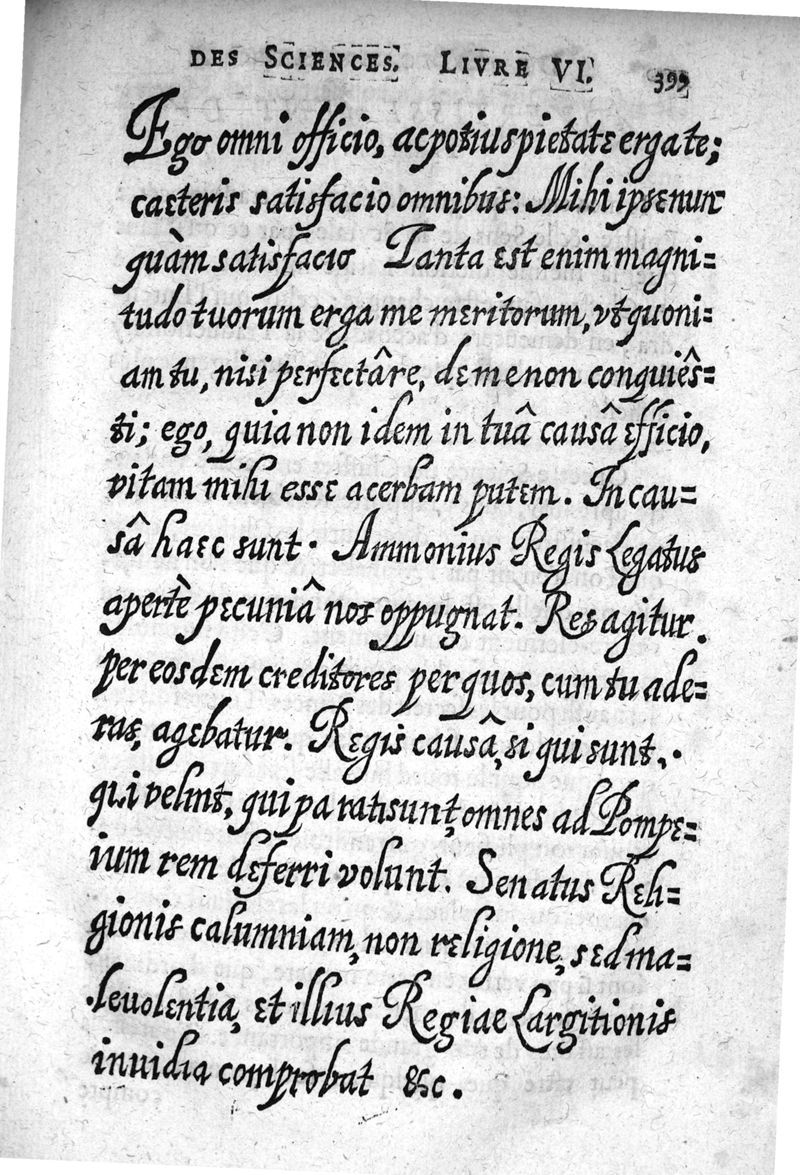 DES SCIENCES. LIVRE VI. 399
Ego omni officio, ac potius pietate erga te;
caeteris satisfacio omnibus: Mihi ipse nun
quàm satisfacio Tanta est enim magni=
tudo tuorum erga me meritorum, vt quoni=
am tu, nisi perfectâ re, de me non conquiês=
ti; ego, quia non idem in tuâ causâ efficio,
vitam mihi esse acerbam putem. In cau=
sâ haec sunt. Ammonius Regis Legatus
apertè pecuniâ nos oppugnat. Res agitur.
per eosdem creditores per quos, cum tu ade=
ras, agebatur. Regis causâ, si qui sunt,.
qui velint, qui pa rati sunt, omnes ad Pompe=
ium rem deferri volunt. Senatus Reli=
gionis calumniam, non religione, sed ma=
leuolentia, et illius Regiae Largitionis
inuidia comprobat &c.